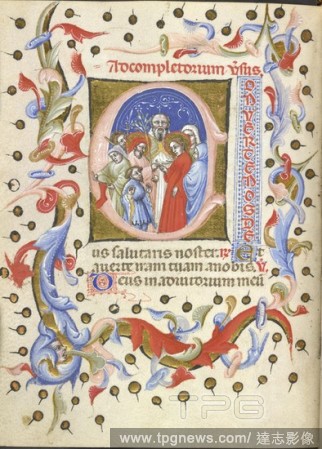 Adcompletorium v̄sus.
C
ONVERTENOSDE
us salutaris noster. R̸ Et
auerte iram tuam anobis. V̸
Deus in adiutorium meū
TPG
www.tpgnews.com/ 達志影像